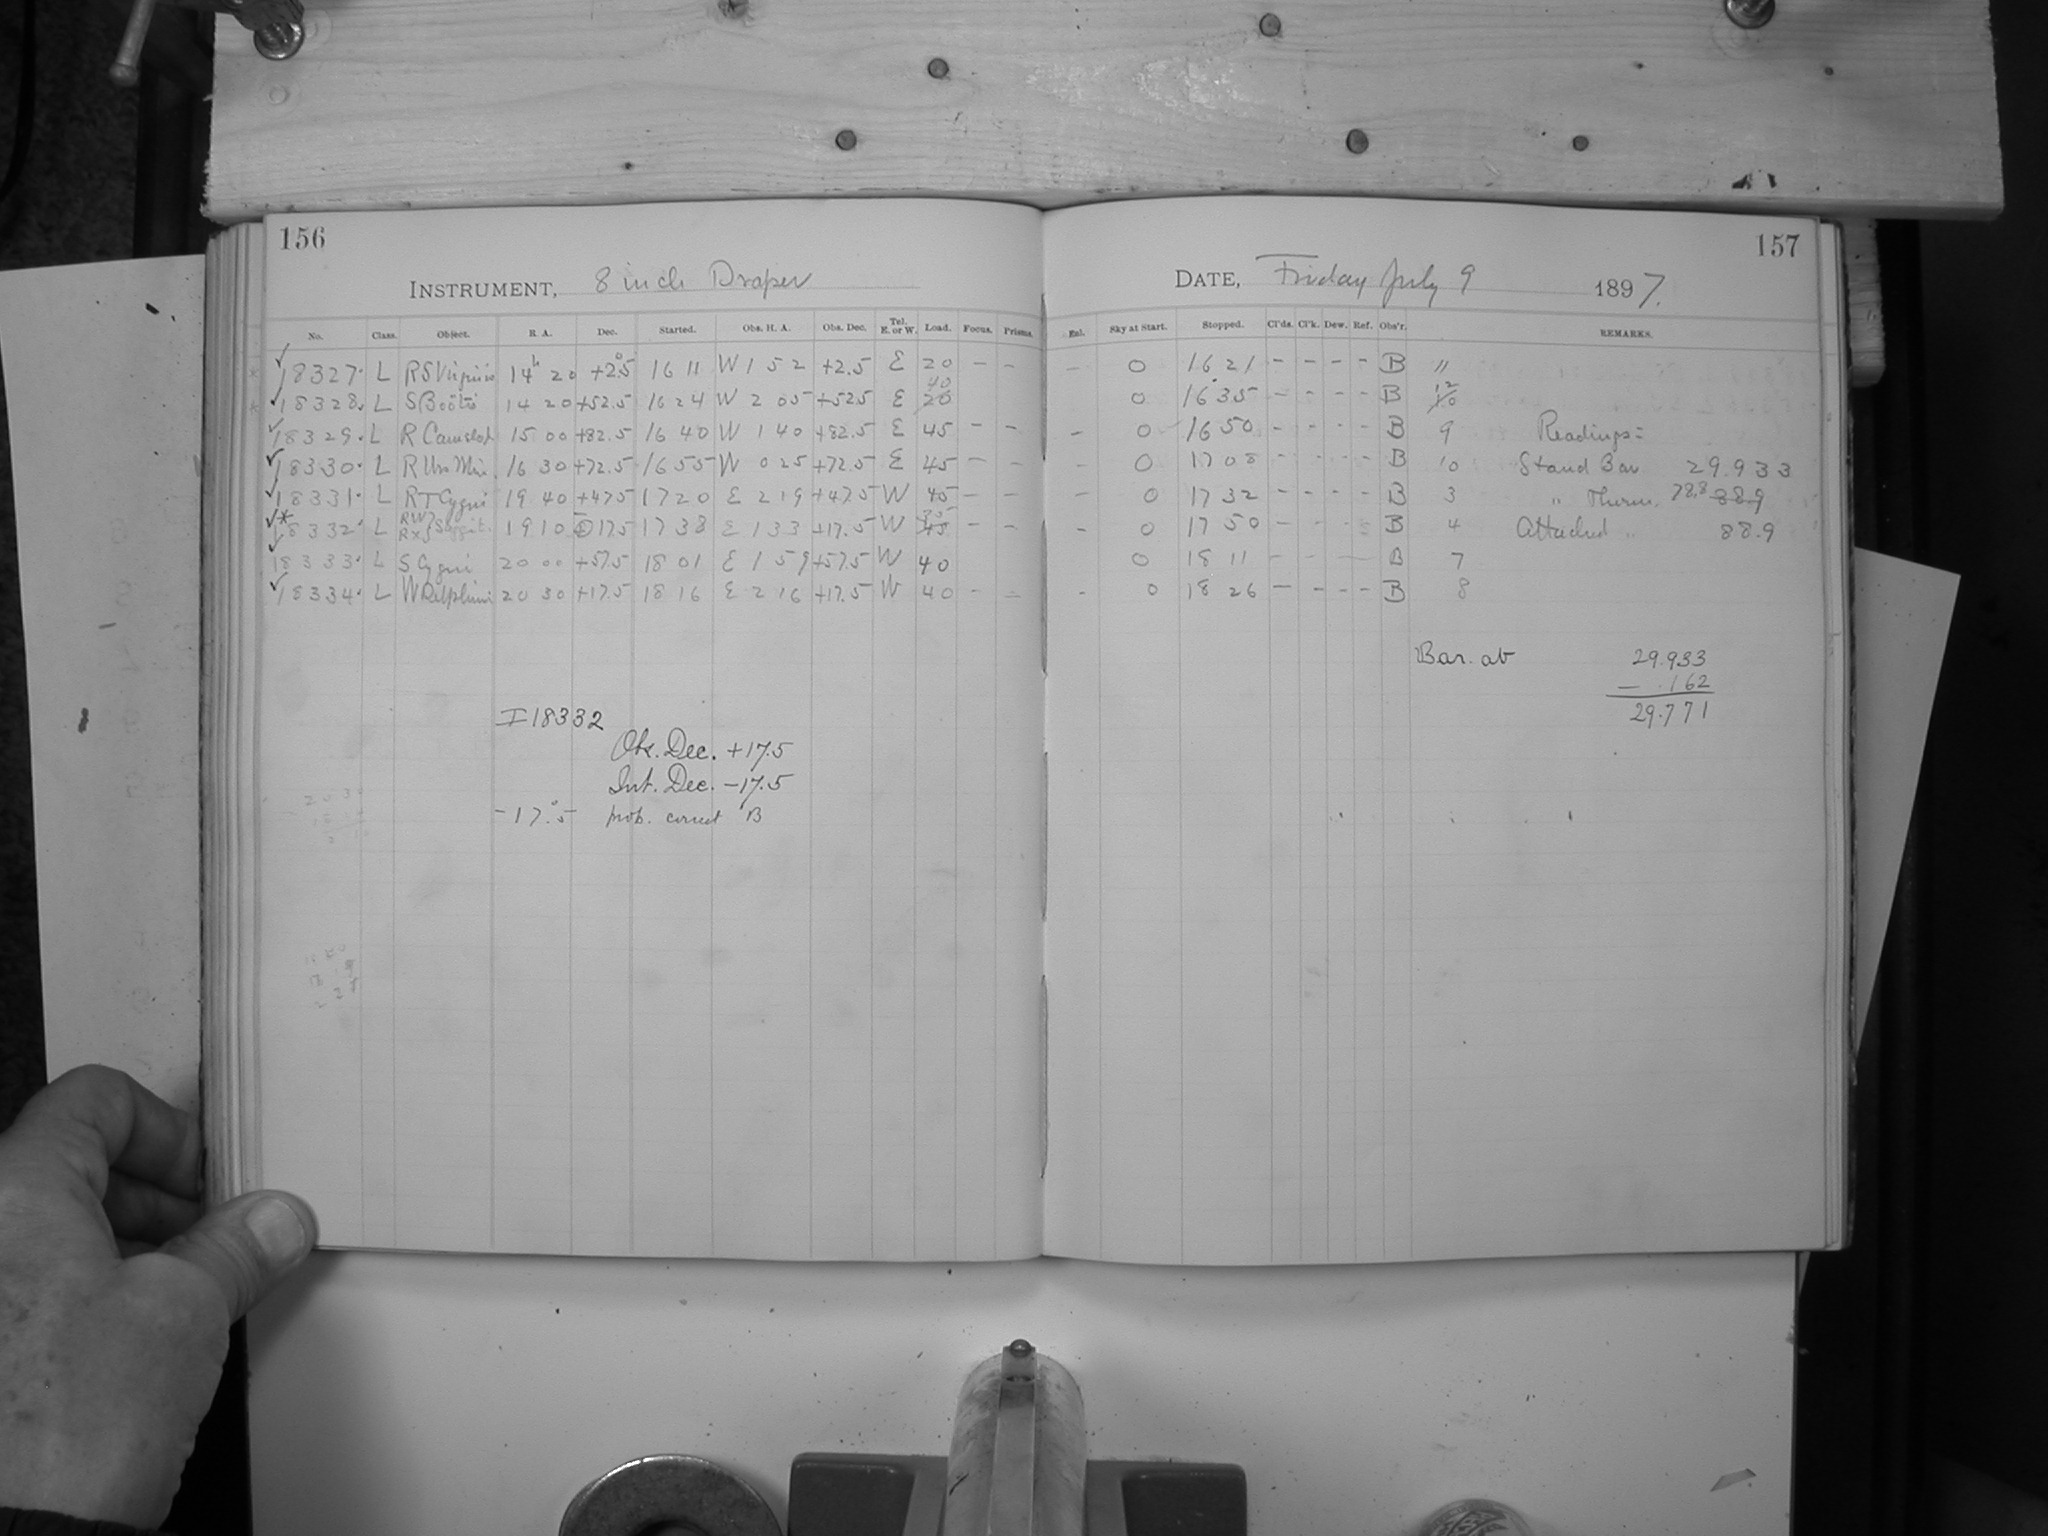 156
INSTRUMENT, 8 inch Draper
No. Class. Object. R. A. Dec. Started. Obs. H. A. Obs. Dec. Tel. E. or W. Load. Focus. Prisms.
✓18327. L RS Virginis 14h 20 +2°.5 16 11 W 1 52 +2.5 E 20 – –
✓18328. L S Boötis 14 20 +52.5 16 24 W 2 05 +52.5 E 40 20
✓18329. L R Camelop 15 00 +82.5 16 40 W 1 40 +82.5 E 45 – –
✓18330. L R Urs Min. 16 30 +72.5 16 55 W 0 25 +72.5 E 45 – –
✓18331. L RT Cygni 19 40 +47.5 17 20 E 2 19 +47.5 W 45 – –
✓*18332. L RW RX} Sagit. 19 10 17.5 17 38 E 1 33 +17.5 W 35 45 – –
✓18333. L S Cygni 20 00 +57.5 18 01 E 1 59 +57.5 W 40
✓18334. L W Delphini 20 30 +17.5 18 16 E 2 16 +17.5 W 40 – –
I 18332
Obs. Dec. +17.5
Int. Dec. –17.5
–17°.5 prob. correct B
157
DATE, Friday July 9 1897.
Enl. Sky at Start. Stopped. Cl'ds. Cl'k. Dew. Ref. Obs'r. REMARKS.
– 0 16 21 – – – – B 11
0 16 35 – – – – B 12 10
– 0 16 50 – – – – B 9 Readings:
– 0 17 08 – – – – B 10 Stand Bar 29.933
– 0 17 32 – – – – B 3 " Therm. 78.8 88.9
– 0 17 50 – – – – B 4 Attached " 88.9
0 18 11 – – – B 7
– 0 18 26 – – – – B 8
Bar. at 29.933
– .162
29.771